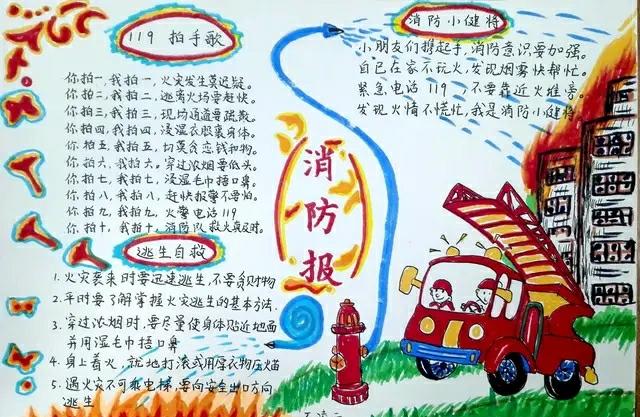 119 拍手歌
你拍一,我拍一,火灾发生莫迟疑。
你拍二,我拍二,逃离火场要赶快。
你拍三,我拍三,现场通道要疏散。
你拍四,我拍四,浸湿衣服裹身体。
你拍五,我拍五,切莫贪恋钱和物。
你拍六,我拍六。穿过浓烟要低头。
你拍七,我拍七,浸湿毛巾捂口鼻。
你拍八,我拍八,赶快报警不要怕。
你拍九,我拍九,火警电话119
你拍十,我拍十,消防队救火真及时。
逃生自救
1. 火灾袭来时要迅速逃生,不要贪财物
2. 平时要了解掌握火灾逃生的基本方法.
3. 穿过浓烟时,要尽量使身体贴近地面
并用湿毛巾捂口鼻
4. 身上着火,就地打滚或用厚衣物压火苗
5. 遇火灾不可乘电梯,要向安全出口方向
逃生
消防报
消防小健将
小朋友们携起手,消防意识要加强。
自己在家不玩火,发现烟雾快帮忙。
紧急电话 119 不要靠近火堆旁。
发现火情不慌忙,我是消防小健将。